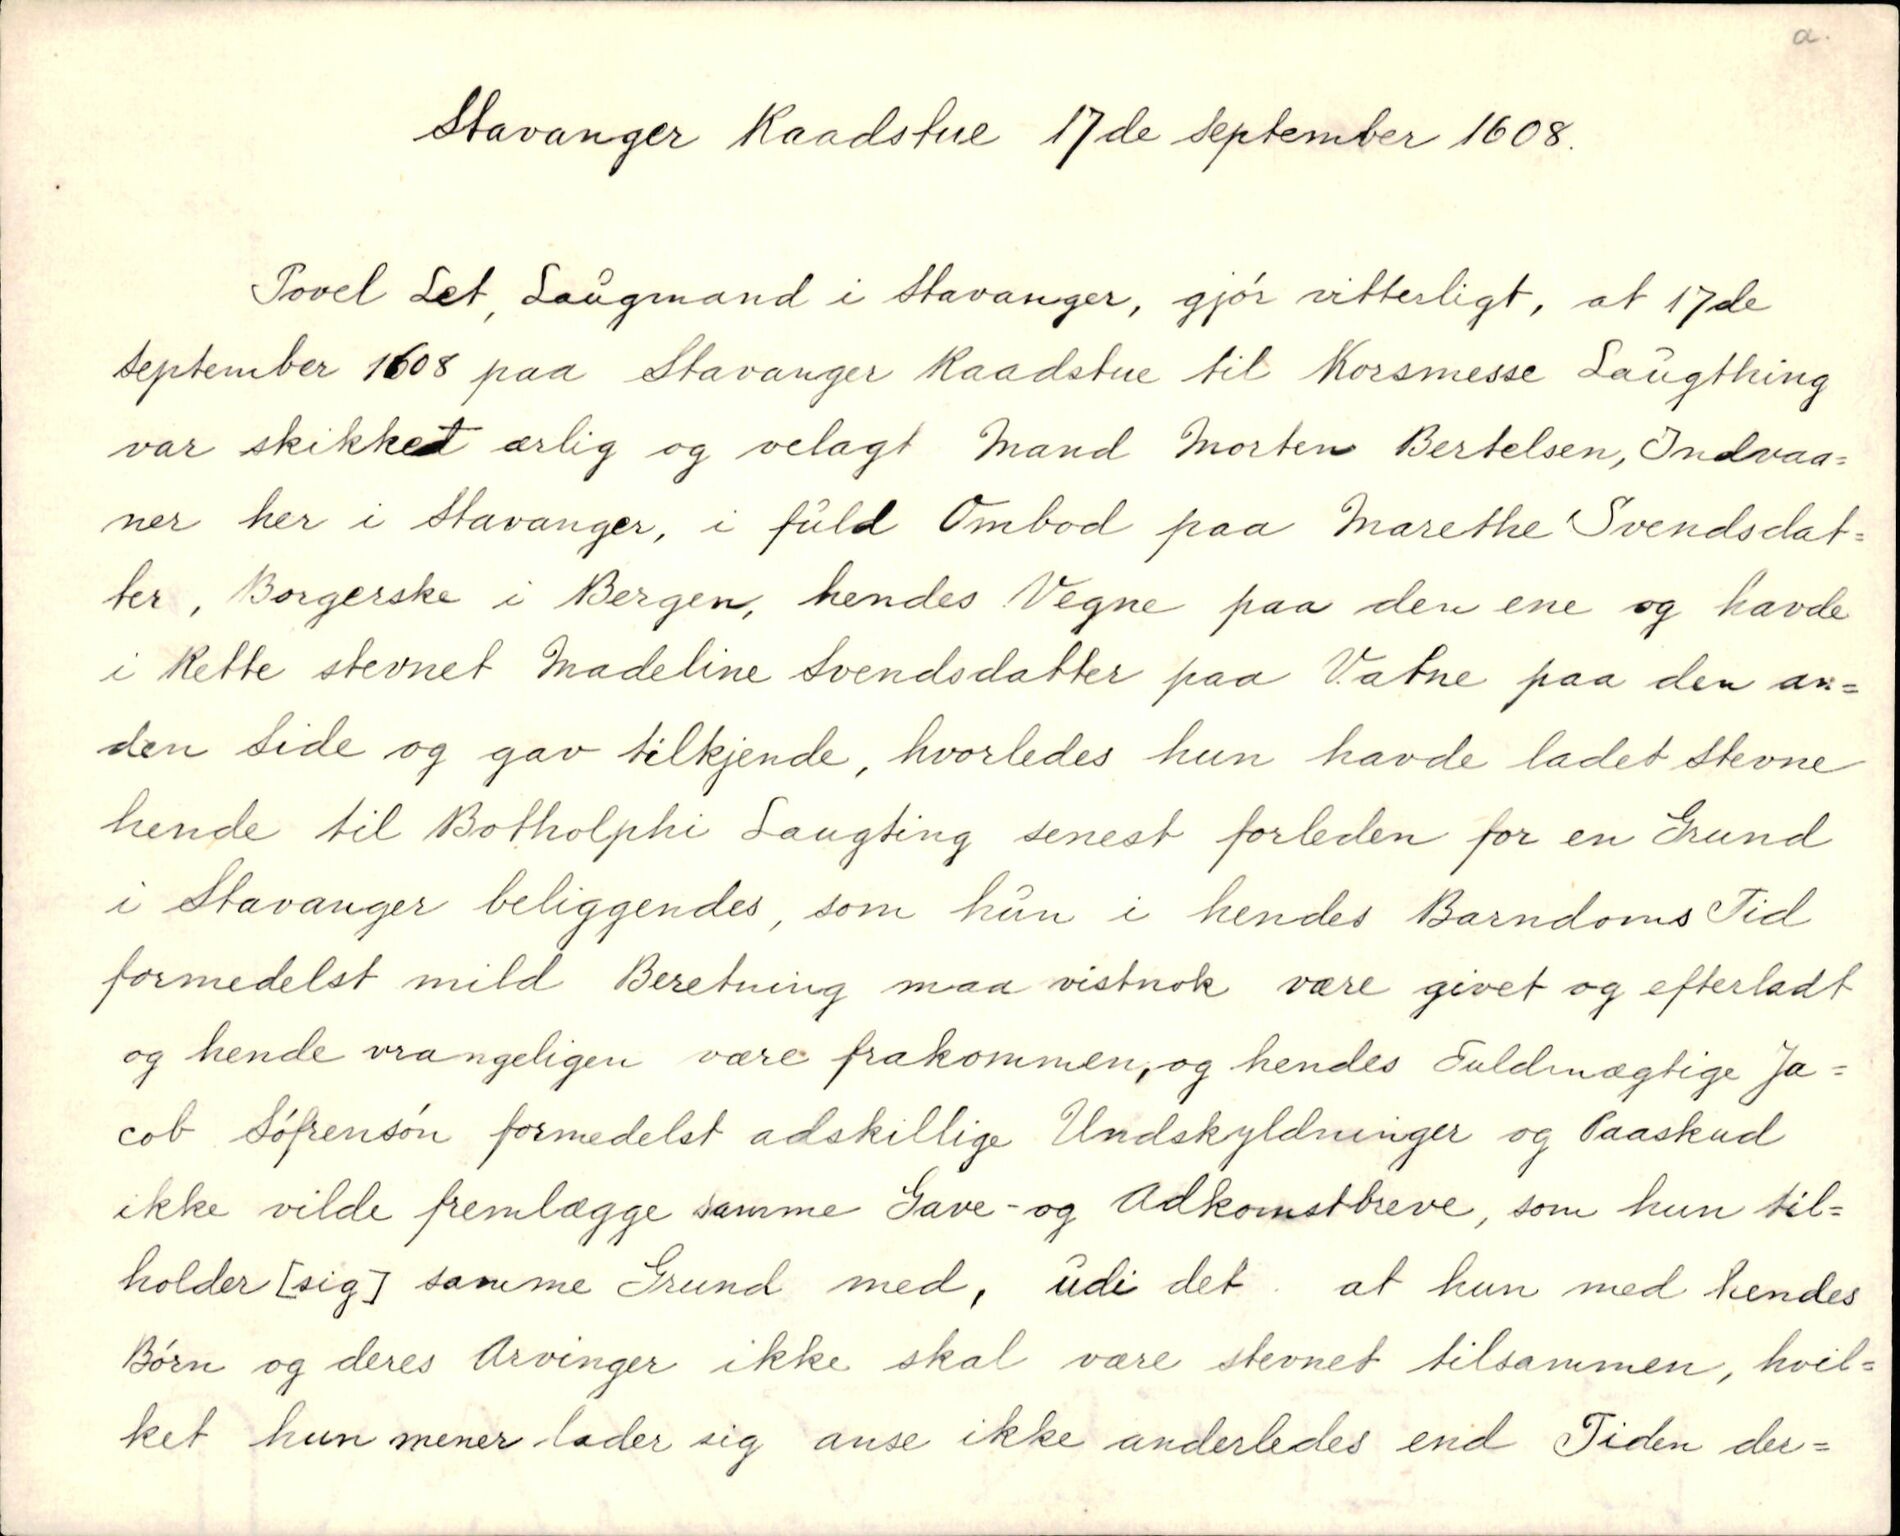 a.
Stavanger Raadstue 17de September 1608.
Povel Let, Laugmand i Stavanger, gjór vitterligt, at 17de
September 1608 paa Stavanger Raadstue til Korsmesse Laugthing
var skikket ærlig og velagt Mand Morten Bertelsen, Indvaa=
ner her i Stavanger, i fuld Ombod paa Marethe Svendsdat=
ter, Borgerske i Bergen, hendes Vegne paa den ene og havde
i Rette stevnet Madeline Svendsdatter paa Vatne paa den an=
den Side og gav tilkjende, hvorledes hun havde ladet stevne
hende til Botholphi Laugting senest forleden for en Grund
i Stavanger beliggendes, som hun i hendes Barndoms Tid
formedelst mild Beretning maa vistnok være givet og efterladt
og hende vrangeligen være frakommen, og hendes Fuldmægtige Ja=
cob Sófrensón formedelst adskillige Undskyldninger og Paaskud
ikke vilde fremlægge samme Gave- og Adkomstbreve, som hun til=
holder [sig] samme Grund med, udi det at hun med hendes
Bórn og deres Arvinger ikke skal være stevnet tilsammen, hvil=
ket hun mener lader sig anse ikke anderledes end Tiden der=